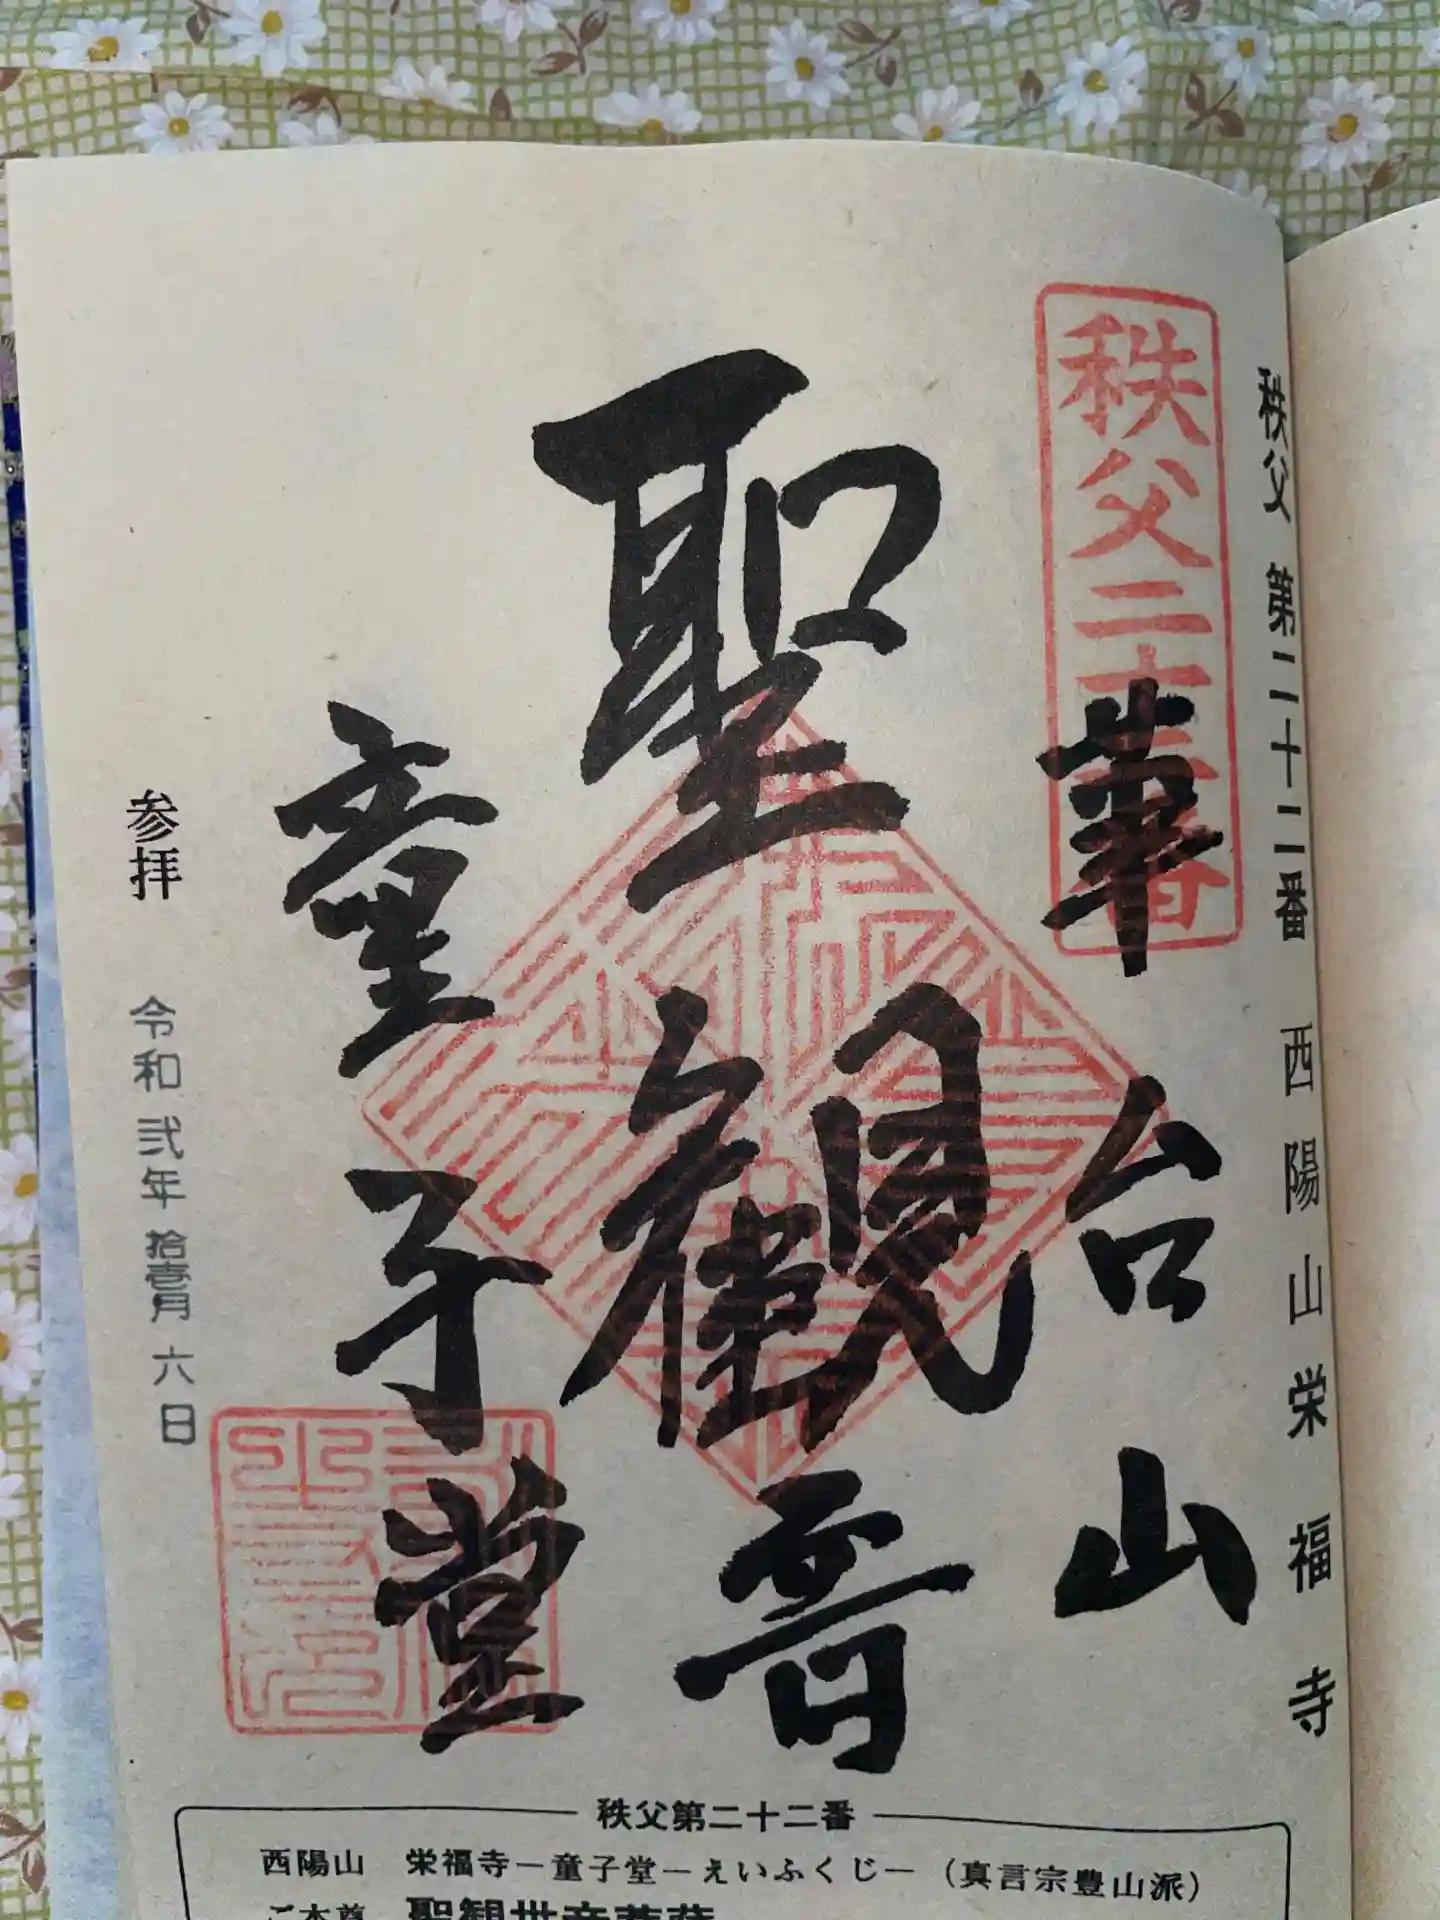 秩父 第二十二番 西陽山栄福寺
秩父二十二番
華台山
聖観音
童子堂
参拝 令和弐年拾壹月六日
秩父第二十二番
西陽山 栄福寺－童子堂－えいふくじ－（真言宗豊山派）
ご本尊 聖観世音菩薩